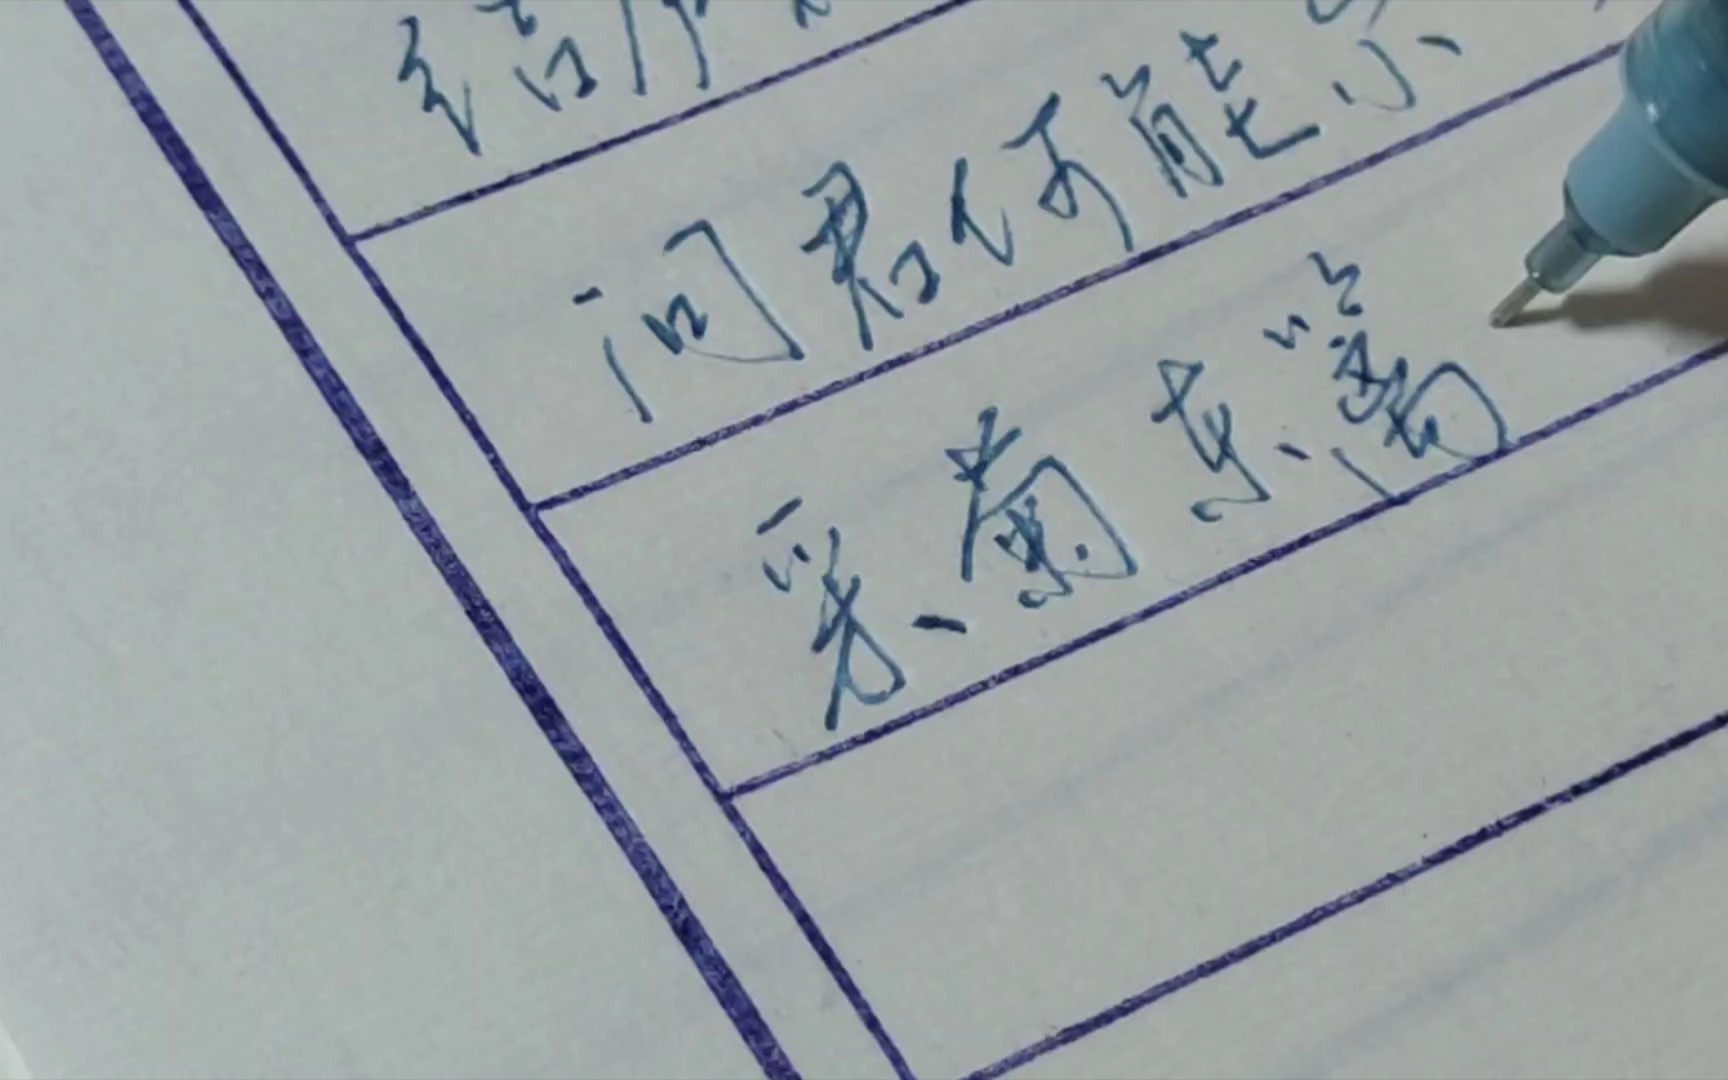 结庐
问君何能尔
采菊东篱